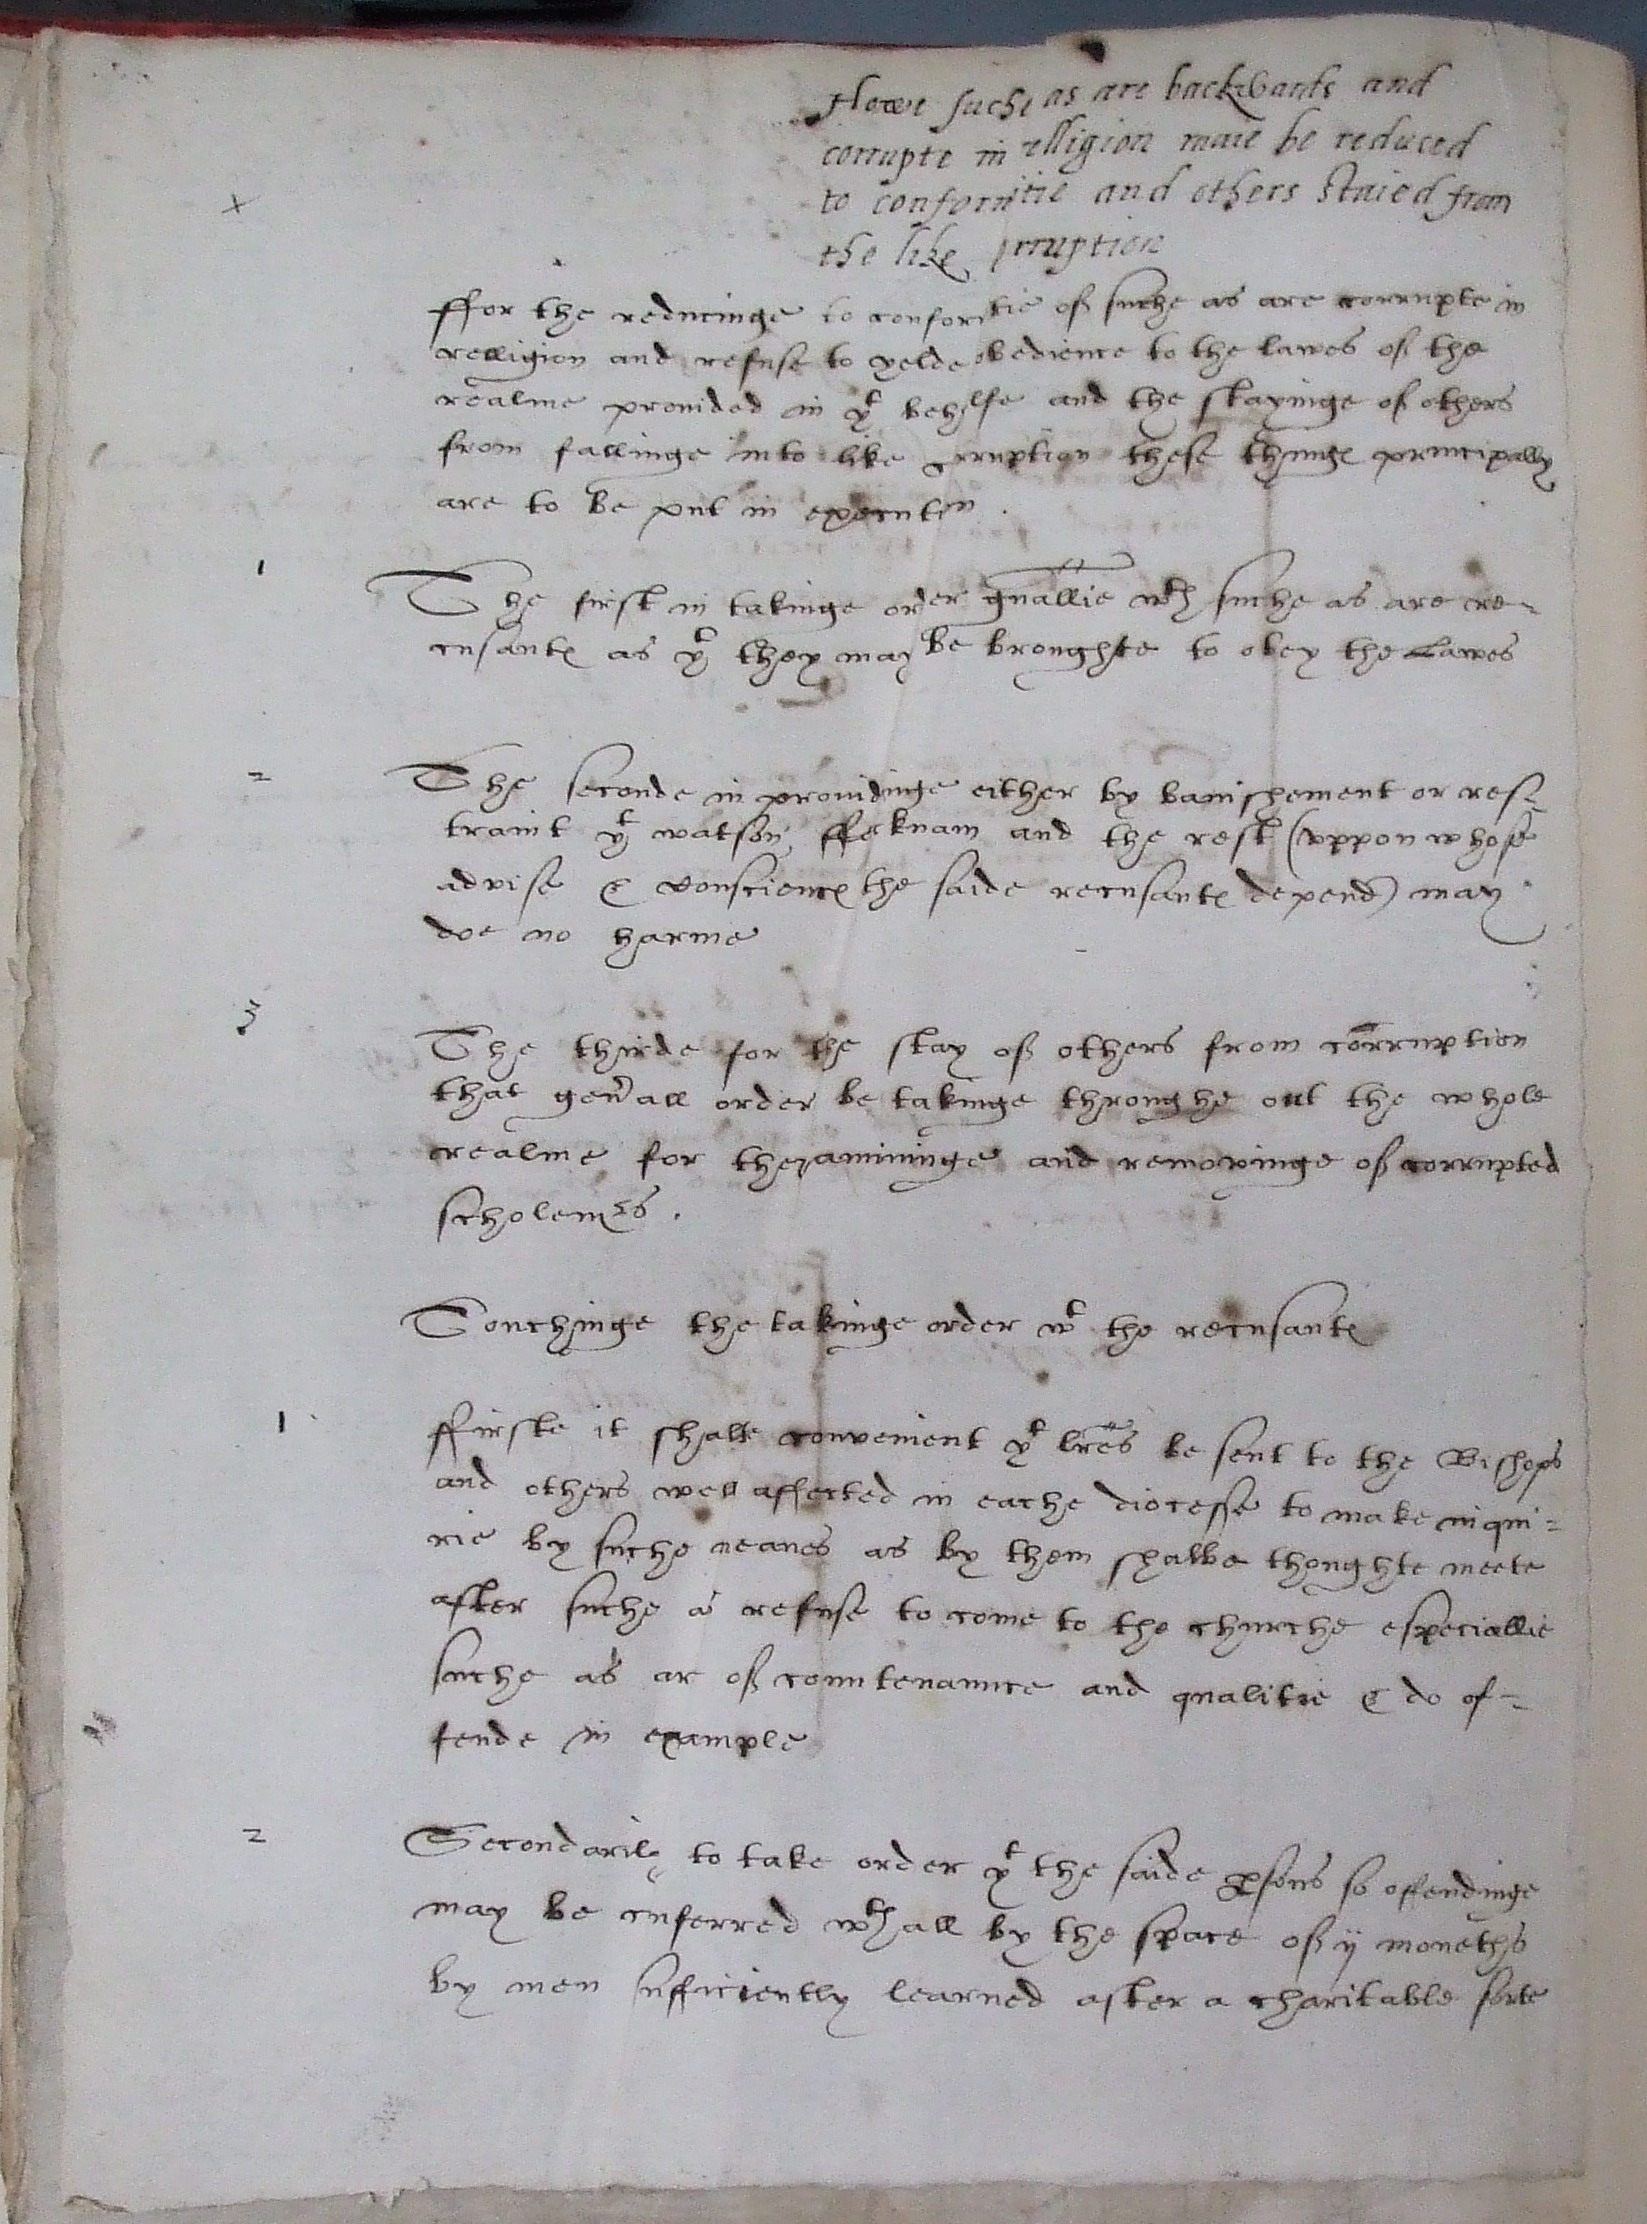 Howe suche as are backwarde and
corrupte in relligion maie be reduced
to conformitie and others staied from
the like corruption
x
ffor the reducinge to conformitie of suche as are corrupte in
relligion and refuse to yelde obedience to the lawes of the
realme provided in yt behalfe and the stayinge of others
from fallinge into like corruption these thinges principally
are to be put in execution.
1 The first in takinge order gnallie wth suche as are re=
cusantes as yt they may be broughte to obey the Lawes
2 The seconde in providinge either by banishement or res=
traint yt watson, ffecknam and the rest (uppon whose
advise & consciences the saide recusantes depend) may
doe no harme
3 The thirde for the stay of others from corruption
that genall order be takinge throughe out the whole
realme for thexamininge and removinge of corrupted
scholemrs.
Touchinge the takinge order wt the recusantes
1 ffirste it shalbe convenient yt lres be sent to the Bishops
and others well affected in eache diocesse to make inqui=
rie by suche meanes as by them shalbe thoughte meete
after suche as refuse to come to the churche especiallie
suche as ar of countenaunce and qualitie & do of=
fende in example
2 Secondarily to take order yt the saide psons so offendinge
may be cnferred wth all by the space of ij monethes
by men sufficiently learned after a charitable sorte